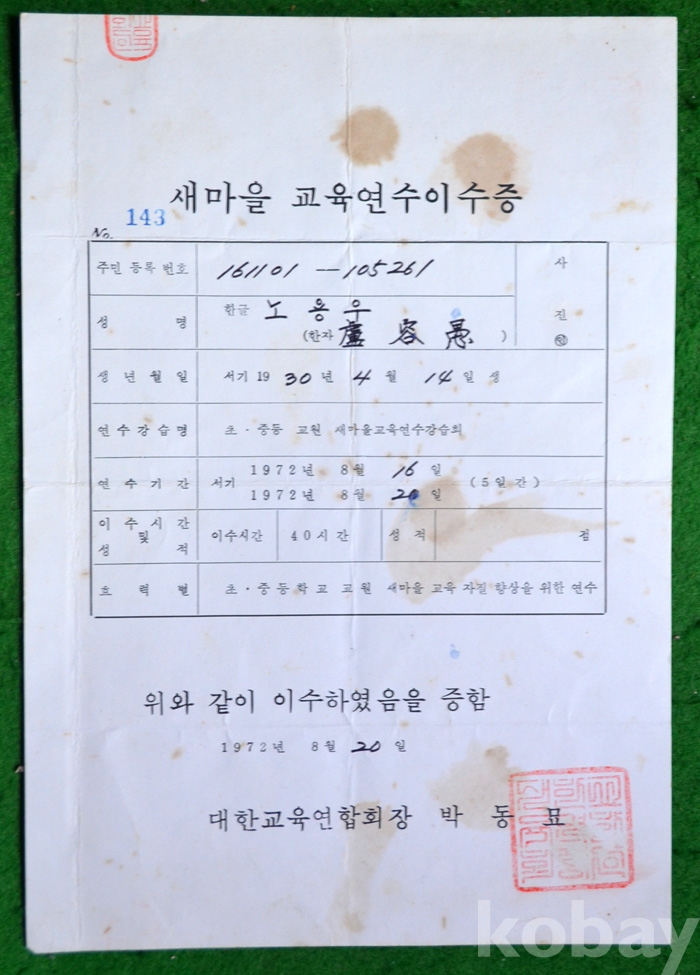 새마을 교육연수이수증
No. 143
주민등록번호 161101—105261 사
성 명 한글 노용우 진
(한자 盧容愚 ) ㊞
생년월일 서기 19 30년 4 월 14 일 생
연수강습명 초·중등 교원 새마을교육연수강습회
연수기간 서기 1972년 8월 16 일 (5일간)
1972년 8월 20 일
이수시간 및 성적 이수시간 40시간 성적 점
효력별 초·중등학교 교원 새마을 교육 자질 향상을 위한 연수
위와 같이 이수하였음을 증함
1972년 8월 20 일
대한교육연합회장 박동묘
kobay